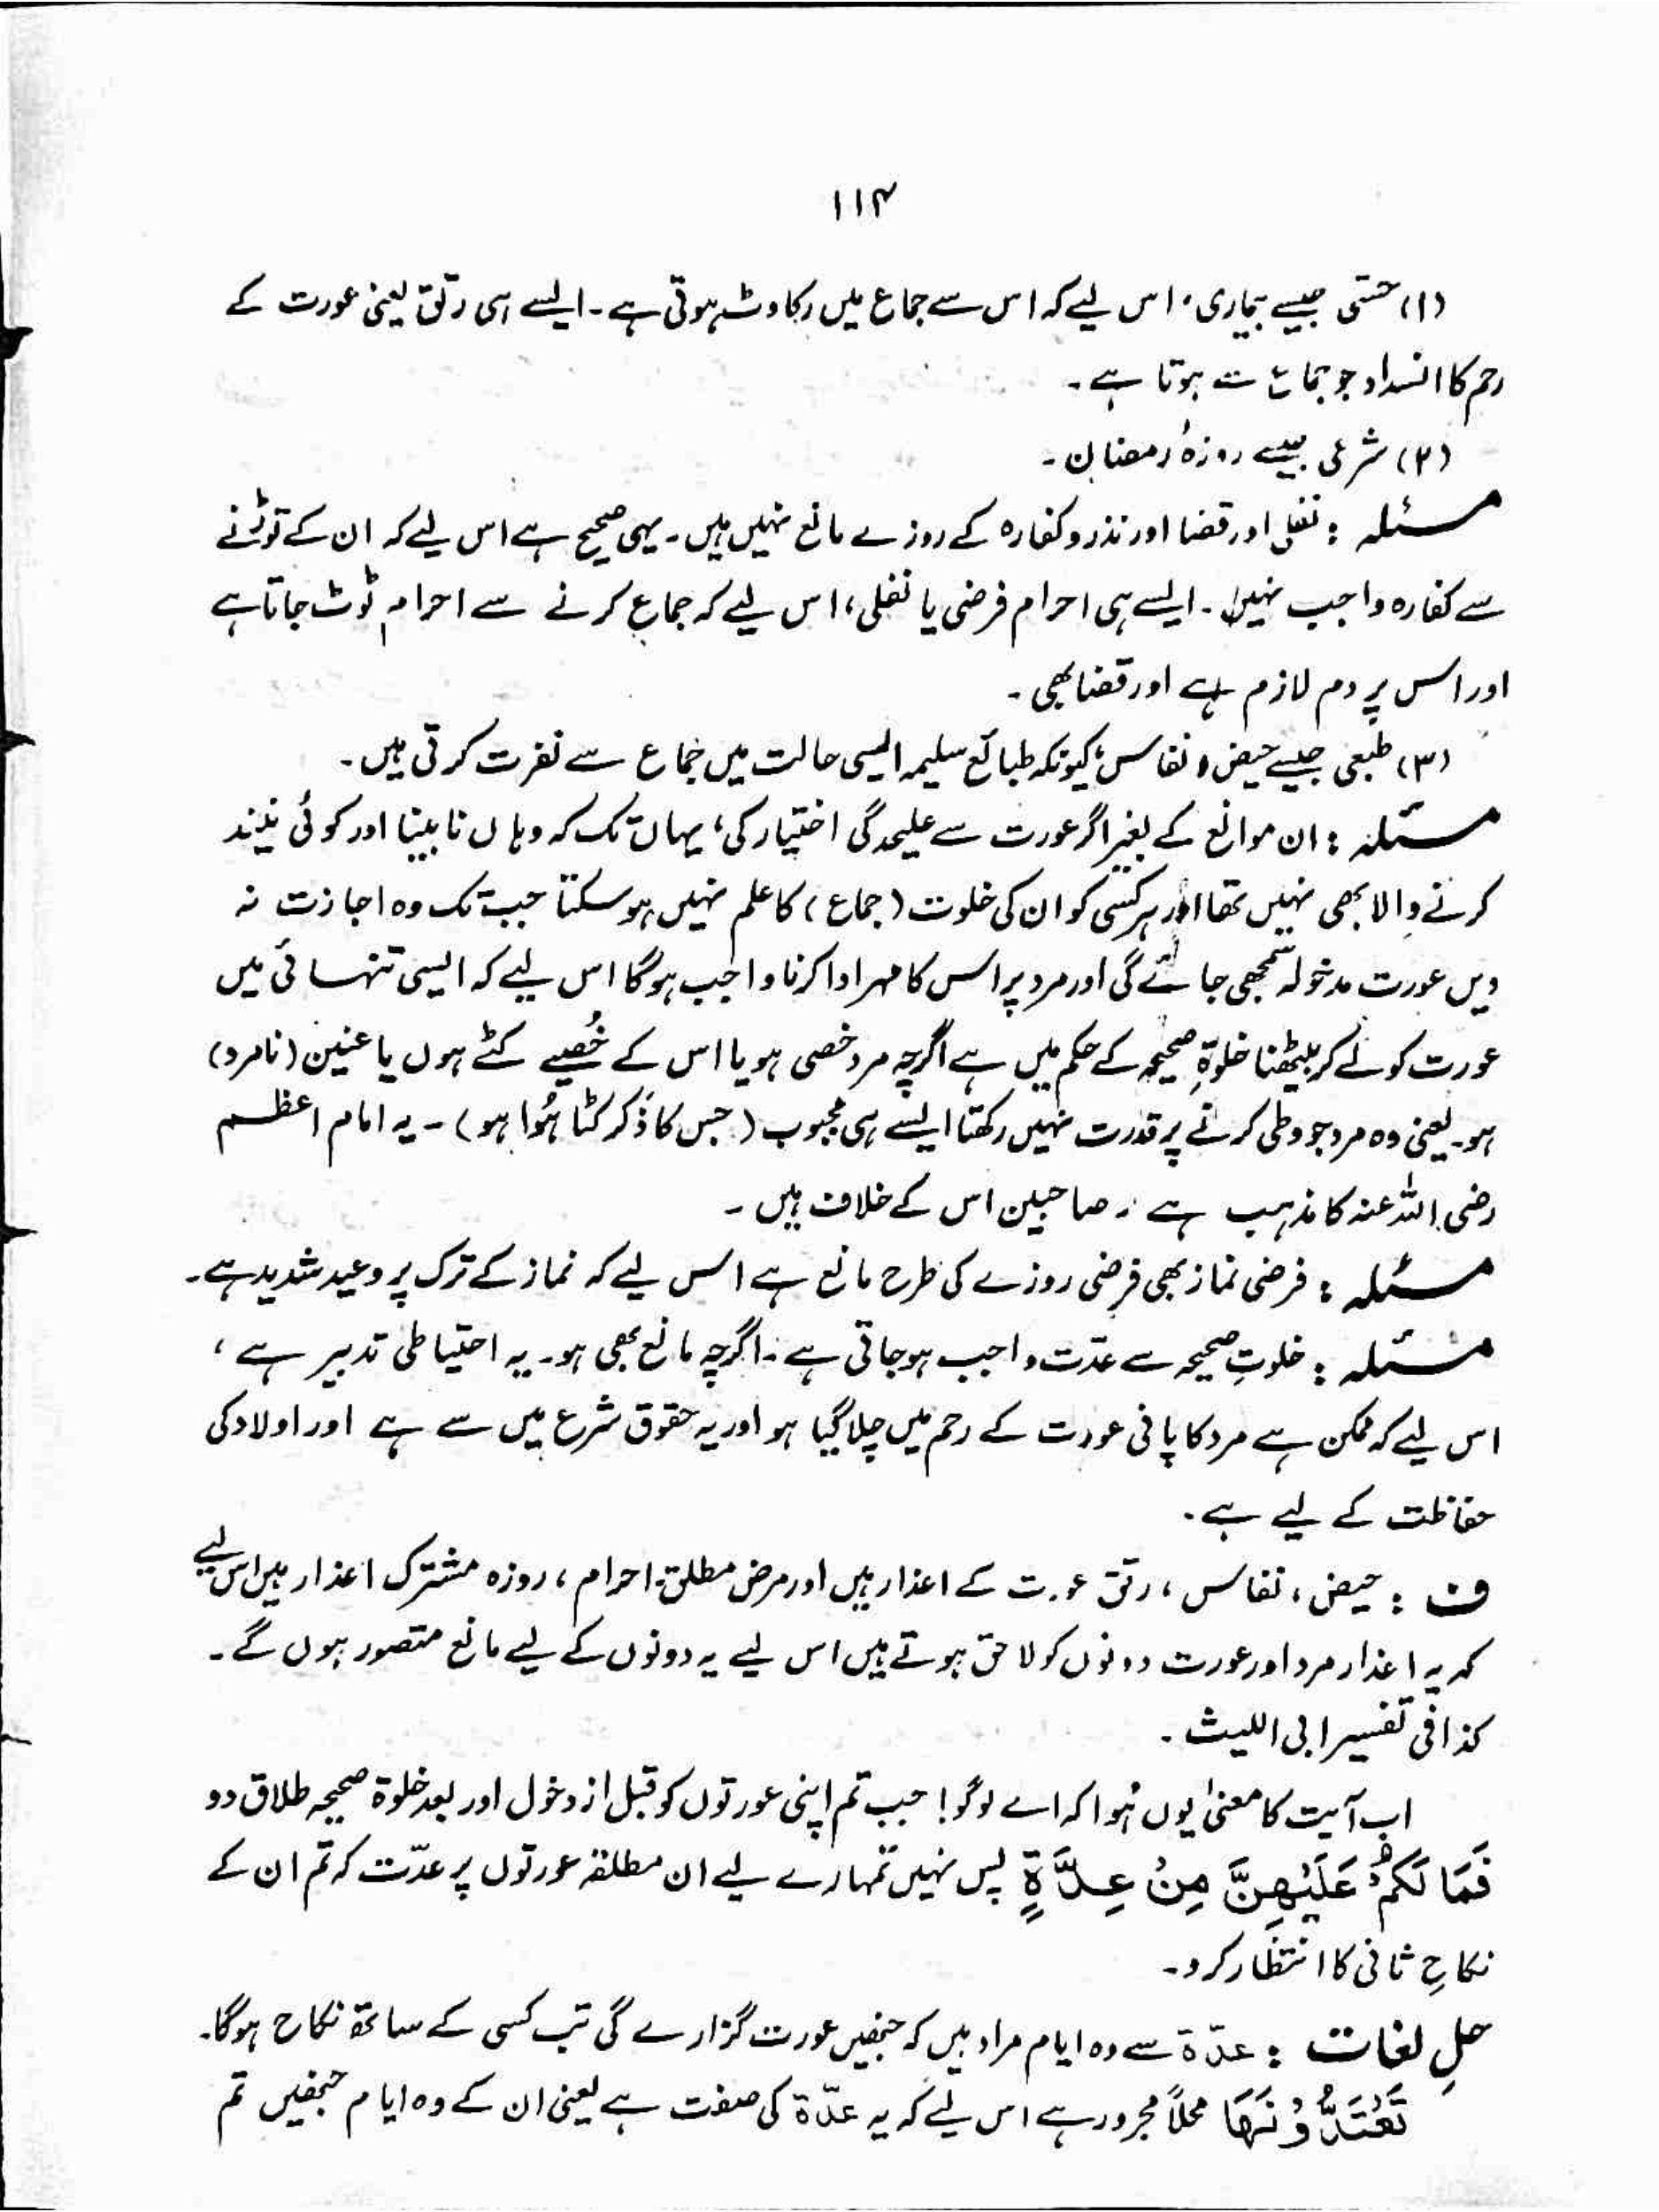 ۱۱۴
(۱) حسّی جیسے بیماری، اس لیے کہ اس سے جماع میں رکاوٹ ہوتی ہے۔ ایسے ہی رتق یعنی عورت کے
رحم کا انسداد جو جماع سے ہوتا ہے۔
(۲) شرعی جیسے روزۂ رمضان۔
مسئلہ : نفلی اور قضا اور نذر و کفارہ کے روزے مانع نہیں ہیں۔ یہی صحیح ہے اس لیے کہ ان کے توڑنے
سے کفارہ واجب نہیں۔ ایسے ہی احرام فرضی یا نفلی، اس لیے کہ جماع کرنے سے احرام ٹوٹ جاتا ہے
اور اس پر دم لازم ہے اور قضا بھی۔
(۳) طبعی جیسے حیض و نفاس، کیونکہ طبائع سلیمہ ایسی حالت میں جماع سے نفرت کرتی ہیں۔
مسئلہ : ان موانع کے بغیر اگر عورت سے علیحدگی اختیار کی، یہاں تک کہ وہاں نابینا اور کوئی نیند
کرنے والا بھی نہیں تھا اور ہر کسی کو ان کی خلوت (جماع) کا علم نہیں ہو سکتا جب تک وہ اجازت نہ
دیں عورت مدخولہ سمجھی جائے گی اور مرد پر اس کا مہر ادا کرنا واجب ہوگا اس لیے کہ ایسی تنہائی میں
عورت کو لے کر بیٹھنا خلوۃِ صحیحہ کے حکم میں ہے اگرچہ مرد خصی ہو یا اس کے خُصیے کٹے ہوں یا عنین (نامرد)
ہو۔ یعنی وہ مرد جو وطی کرنے پر قدرت نہیں رکھتا ایسے ہی مجبوب (جس کا ذَکر کٹا ہُوا ہو)۔ یہ امام اعظم
رضی اللہ عنہ کا مذہب ہے۔ صاحبین اس کے خلاف ہیں۔
مسئلہ : فرضی نماز بھی فرضی روزے کی طرح مانع ہے اس لیے کہ نماز کے ترک پر وعید شدید ہے۔
مسئلہ : خلوتِ صحیحہ سے عدّت واجب ہوجاتی ہے۔ اگرچہ مانع بھی ہو۔ یہ احتیاطی تدبیر ہے،
اس لیے کہ ممکن ہے مرد کا پانی عورت کے رحم میں چلا گیا ہو اور یہ حقوق شرع میں سے ہے اور اولاد کی
حفاظت کے لیے ہے۔
ف : حیض، نفاس، رتق عورت کے اعذار ہیں اور مرض مطلق، احرام، روزہ مشترک اعذار ہیں اس لیے
کہ یہ اعذار مرد اور عورت دونوں کو لاحق ہوتے ہیں اس لیے یہ دونوں کے لیے مانع متصور ہوں گے۔
کذا فی تفسیر ابی اللیث۔
اب آیت کا معنیٰ یوں ہُوا کہ اے لوگو! جب تم اپنی عورتوں کو قبل از دخول اور بعد خلوۃ صحیحہ طلاق دو
فَمَا لَكُمْ عَلَيْهِنَّ مِنْ عِدَّةٍ پس نہیں تمہارے لیے ان مطلقہ عورتوں پر عدّت کہ تم ان کے
نکاحِ ثانی کا انتظار کرو۔
حلِ لغات : عدّۃ سے وہ ایام مراد ہیں کہ جنھیں عورت گزارے گی تب کسی کے ساتھ نکاح ہوگا۔
تَعْتَدُّوْنَهَا محلاً مجرور ہے اس لیے کہ یہ عدّۃ کی صفت ہے یعنی ان کے وہ ایام جنھیں تم